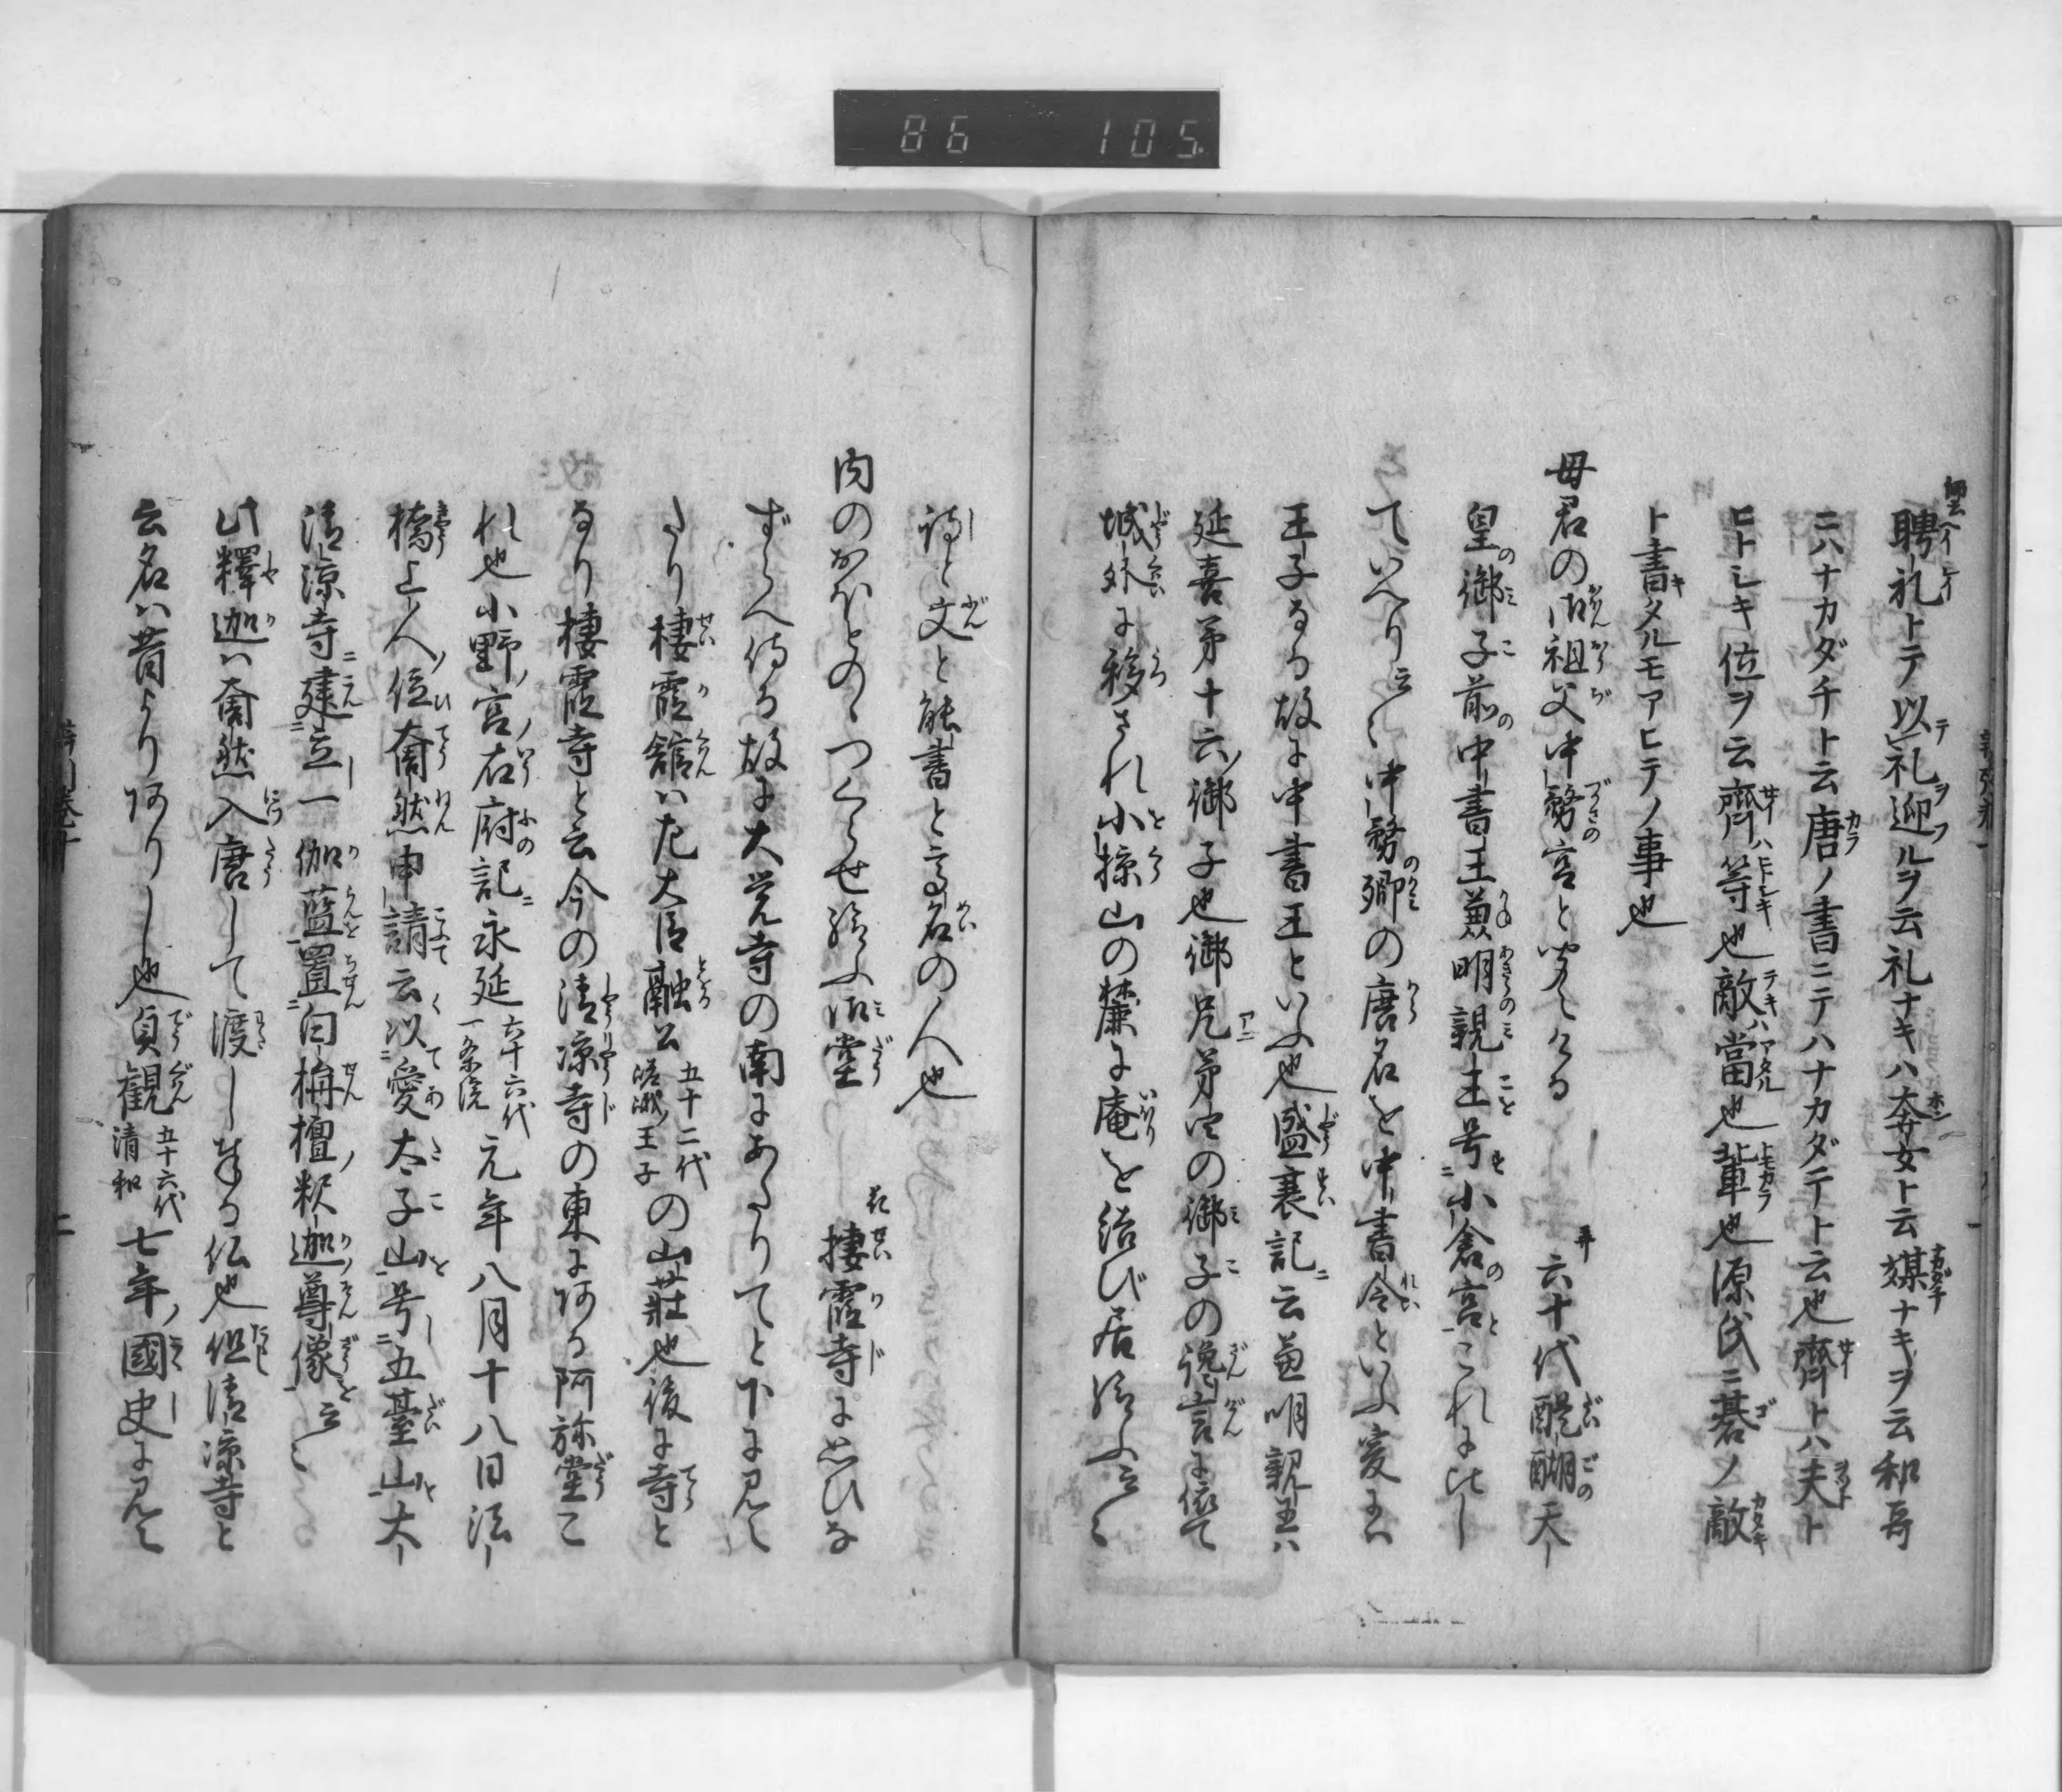 86 105
師云
聘礼トテ以礼迎ルヲ云礼ナキハ奔女ト云媒ナキヲ云和哥
ニハナカダチト云唐ノ書ニテハナカダテト云也齊トハ夫ト
ヒトシキ位ヲ云齊等也敵當也輩也源氏ニ碁ノ敵
ト書タルモアヒテノ事也
母君の御祖父中務宮と聞えける 弄 六十代醍醐天
皇の御子前中書王兼明親王号小倉宮とこれに比し
ていへり云〻中務卿の唐名を中書令といふ爰には
王子なる故に中書王といふ也盛衰記云兼明親王は
延喜第十六ノ御子也御兄弟の御子の讒言に依て
城外に移され小掠山の麓に庵を結び居給ふ云〻
詩と文と能書と高名の人也
内のおほとのゝつくらせ給ふ御堂 花 棲霞寺に思ひな
ずらへ侍る故に大覚寺の南にあたりてと下に見え
たり棲霞舘は左大臣融公五十二代嵯峨ノ王子の山荘也後に寺と
なり棲霞寺と云今の清凉寺の東にある阿弥堂こ
れ也小野ノ宮右府記ニ永延六十六代一条院元年八月十八日法
橋上人ノ位奝然申請云以愛太子山号五臺山大
清凉寺建立一伽藍置白栴檀ノ釈迦ノ尊像云〻
此釋迦は奝然入唐して渡し奉る仏也但清凉寺と
云名は昔よりありし也貞観五十六代清和七年ノ國史に見え